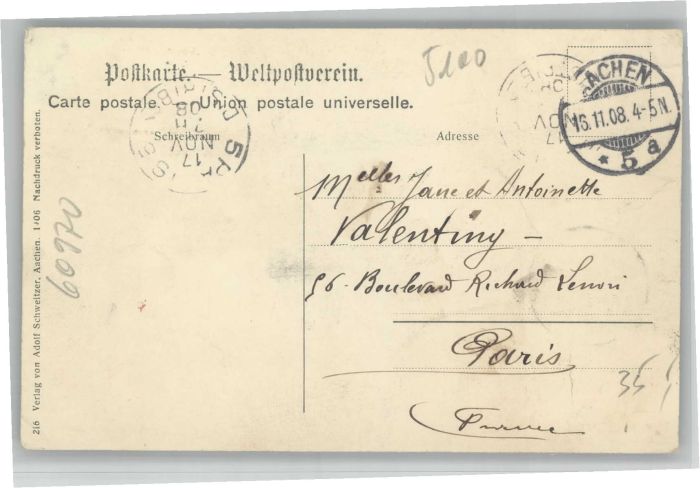 5100
Postkarte. — Weltpostverein.
Carte postale. — Union postale universelle.
Schreibraum
Adresse
AACHEN
16.11.08. 4-5N.
* 5 a
17
NOV
08
Melles Jane et Antoinette
Valentiny —
56. Boulevard Richard Lenoir
Paris
France
35
60970
216 Verlag von Adolf Schweitzer, Aachen. 1906 Nachdruck verboten.